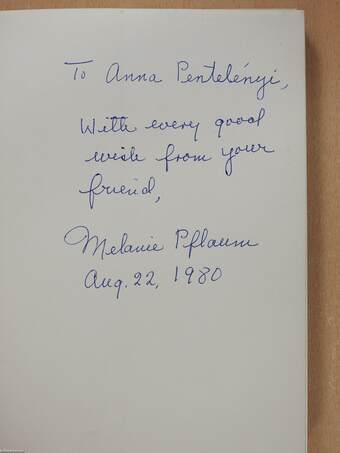 To Anna Pentelényi,
With every good
wish from your
friend,
Melanie Pflaum
Aug. 22, 1980